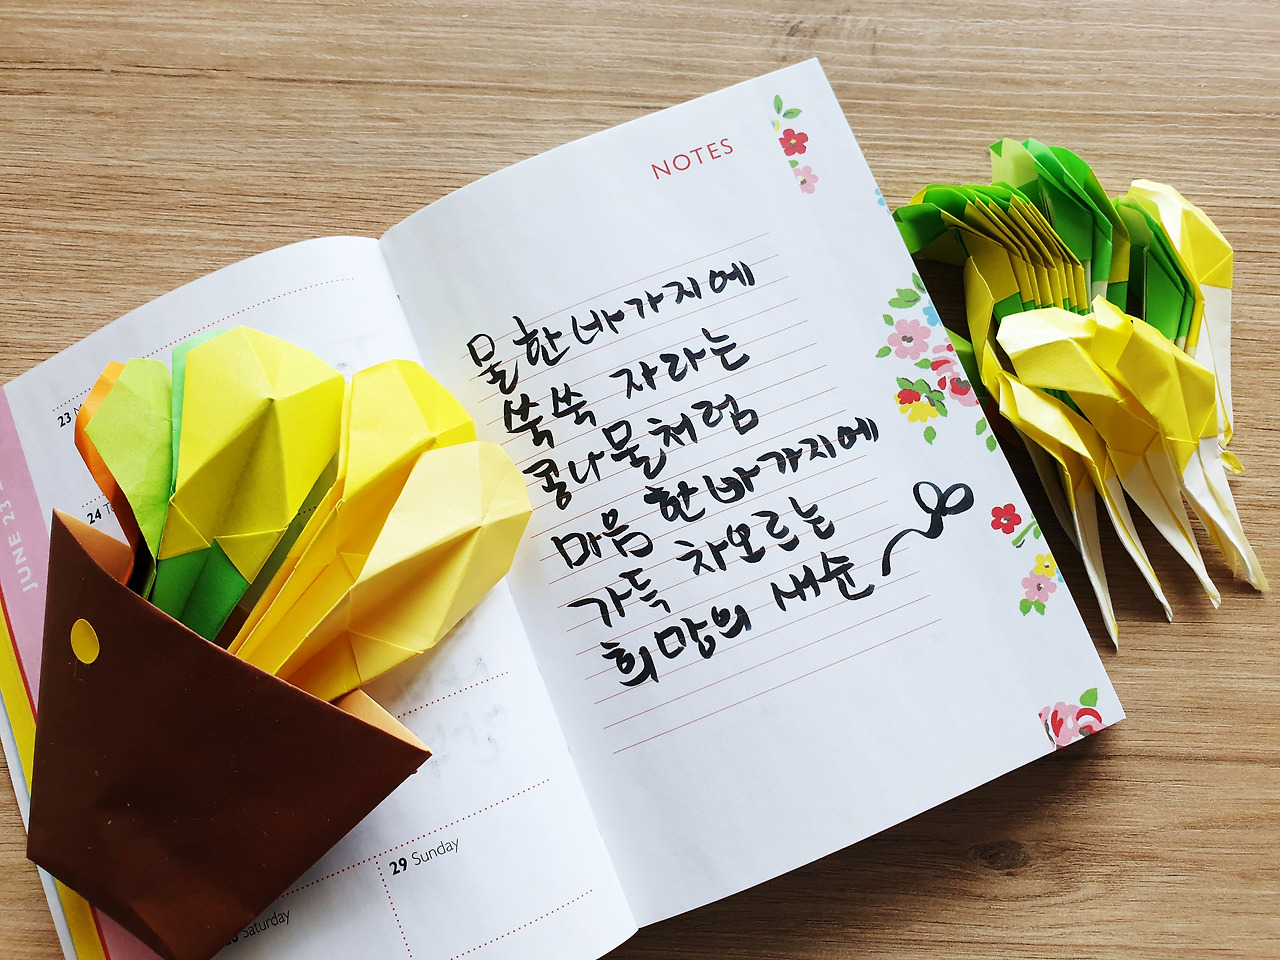 NOTES
물 한 바가지에
쑥쑥 자라는
콩나물처럼
마음 한 바가지에
가득 차오르는
희망의 새순
23 M
24 T
JUNE 23
29 Sunday
Saturday